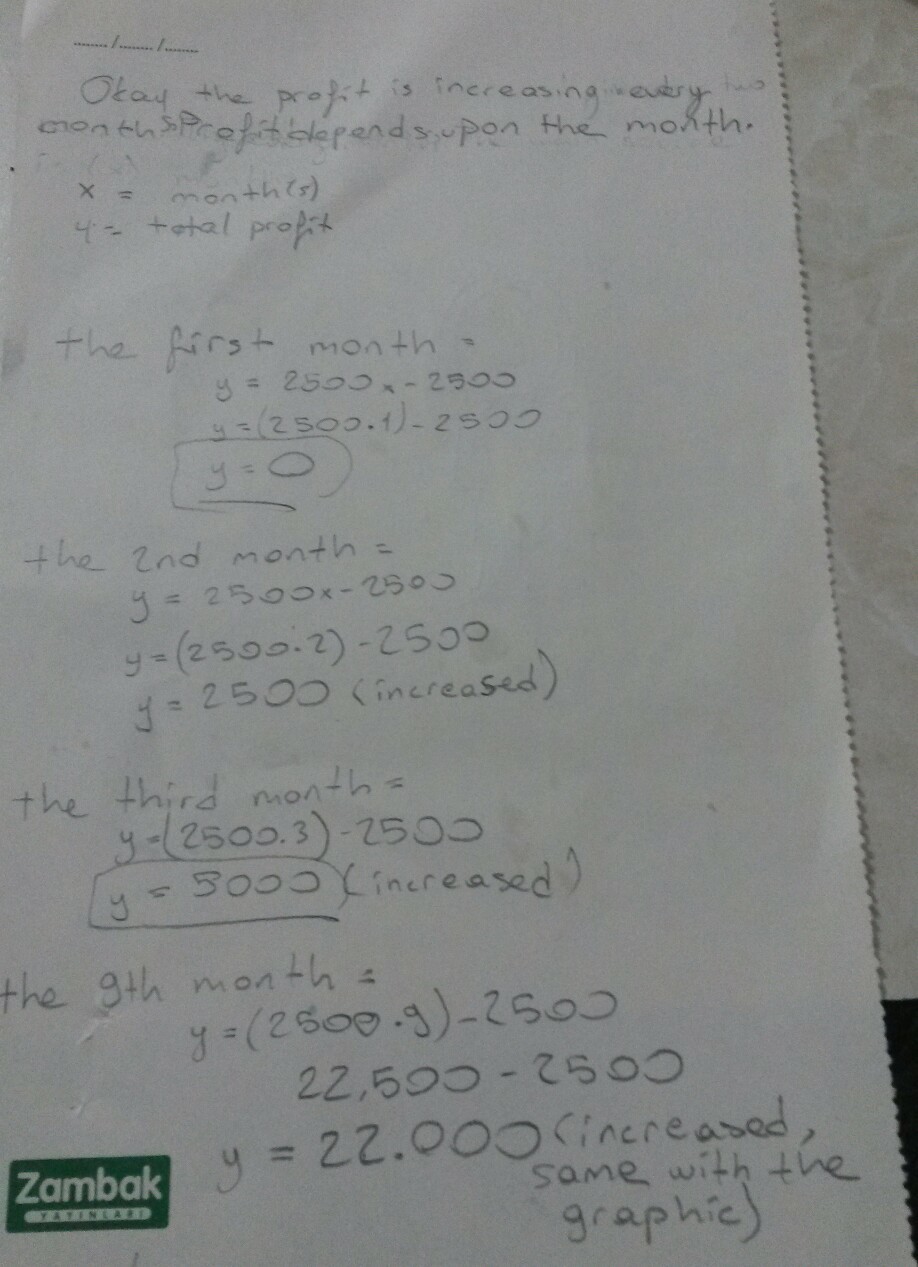 ....../....../......
Okay the profit is increasing every two
months Profit depends upon the month.
x = month(s)
y = total profit
the first month =
y = 2500x - 2500
y = (2500.1) - 2500
y = 0
the 2nd month =
y = 2500x - 2500
y = (2500.2) - 2500
y = 2500 (increased)
the third month =
y = (2500.3) - 2500
y = 5000 (increased)
the 9th month =
y = (2500.9) - 2500
22,500 - 2500
y = 22.000 (increased,
same with the
graphic)
Zambak
YAYINLARI